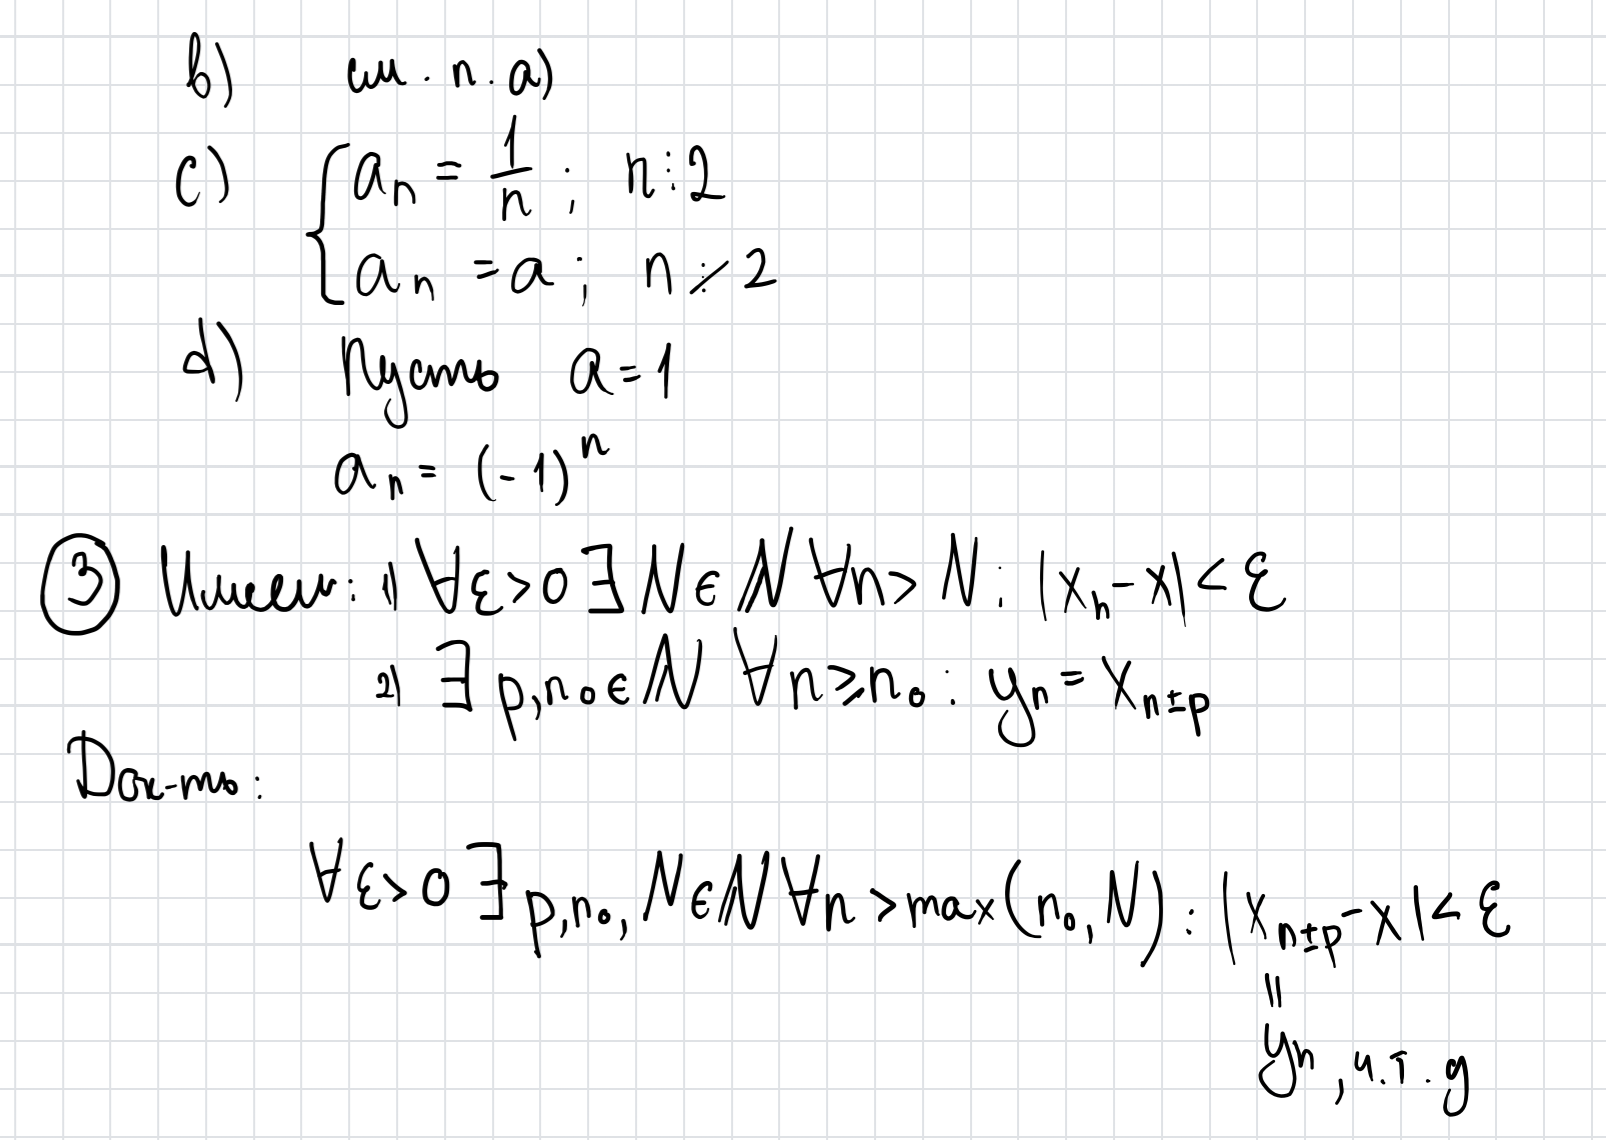 b) см. п. a)
c) { aₙ = 1/n ; n ⋮ 2
aₙ = a ; n ⋮̸ 2
d) Пусть a = 1
aₙ = (-1)ⁿ
③ Имеем: 1) ∀ε > 0 ∃ N ∈ ℕ ∀n > N : |xₙ - x| < ε
2) ∃ p, n₀ ∈ ℕ ∀n ⩾ n₀ : yₙ = x_{n±p}
Док-ть:
∀ε > 0 ∃ p, n₀, N ∈ ℕ ∀n > max(n₀, N) : |x_{n±p} - x| < ε
||
yₙ, ч.т.д